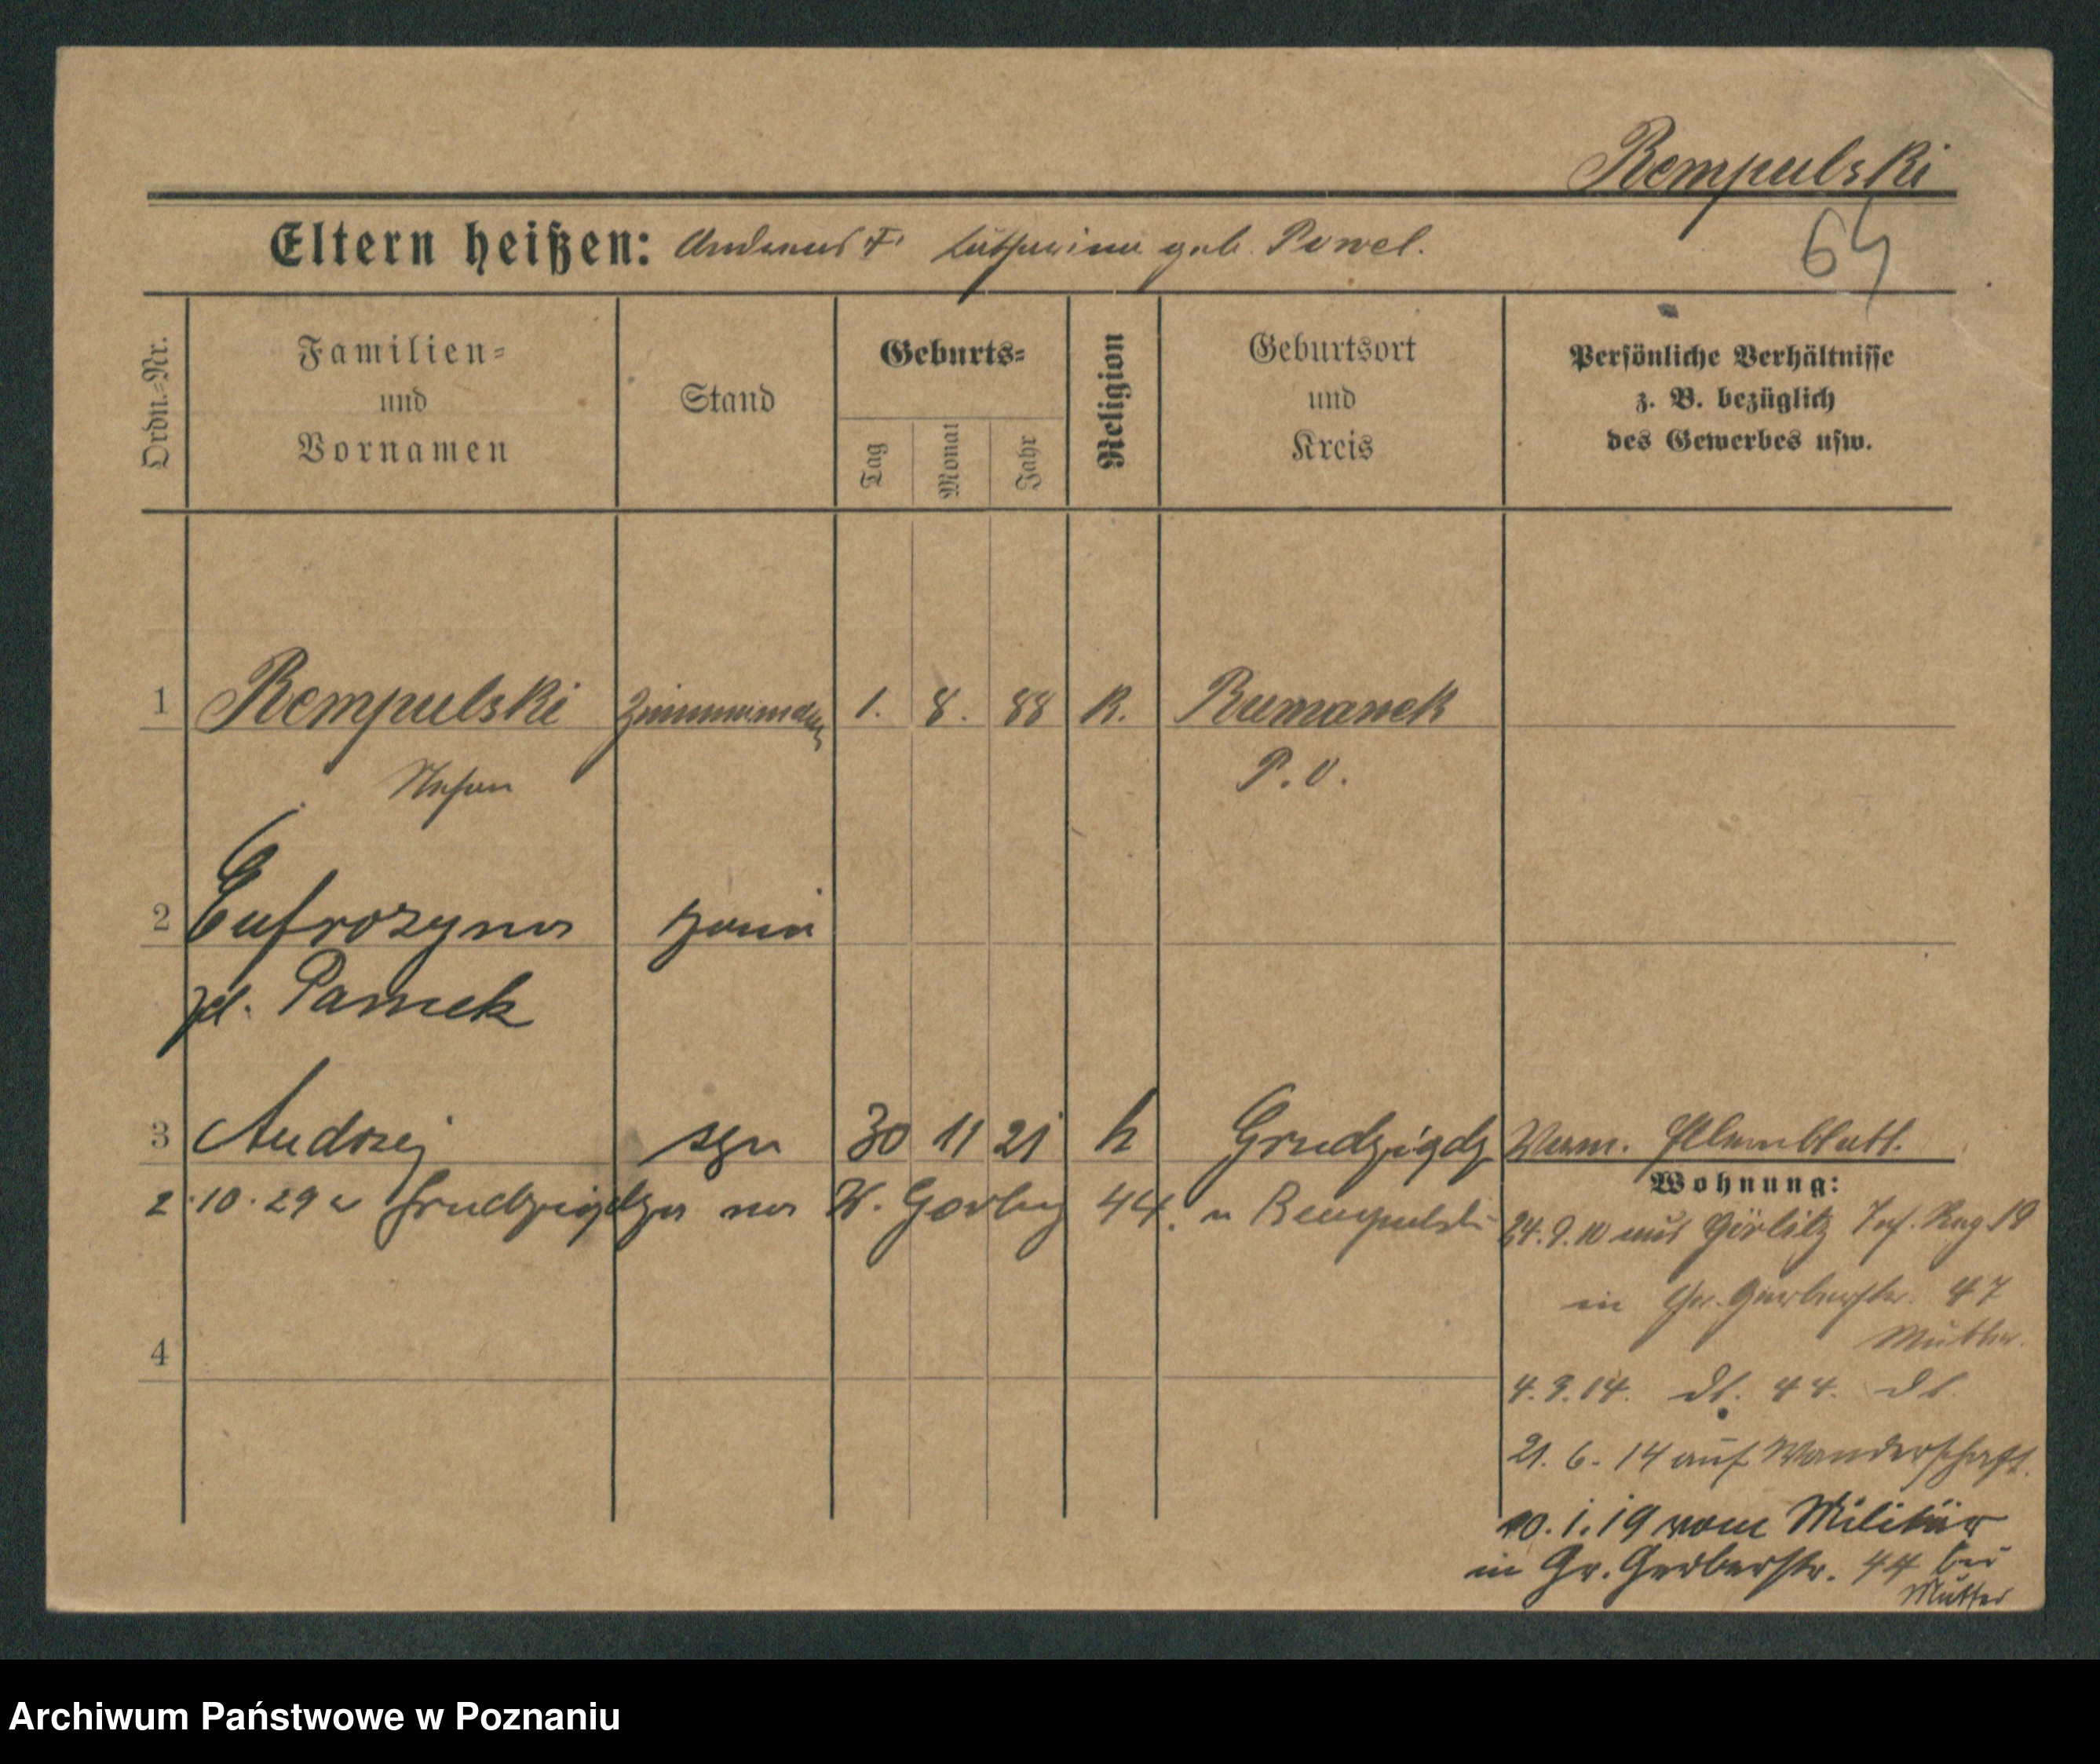 Rempulski
64
Eltern heißen: Andreas F. Katharina geb. Pawel.
Ordn.-Nr.
Familien-
und
Vornamen
Stand
Geburts-
Tag
Monat
Jahr
Religion
Geburtsort
und
Kreis
Persönliche Verhältnisse
z. B. bezüglich
des Gewerbes usw.
1 Rempulski 1. 8. 88 R. Rumanek
Stefan P. O.
2 Eufrozyna żona
zd. Pawlek
3 Andrzej syn 30 11 21 k Grudziądz
Wohnung:
2.10.29 z Grudziądza na W. Garbary 44. u Rempulski
24.9.10 aus Görlitz Inf. Reg. 19
in Gr. Gerberstr. 47
Mutter.
4
4.3.14. dt. 44. dt.
21.6.14 auf Wanderschaft.
10.1.19 vom Militär
in Gr. Gerberstr. 44 bei
Mutter
Archiwum Państwowe w Poznaniu